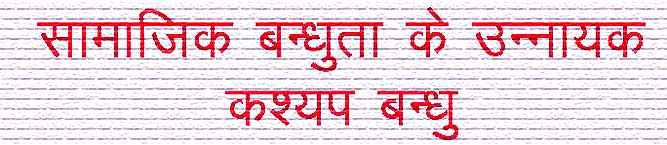 सामाजिक बन्धुता के उन्नायक
कश्यप बन्धु